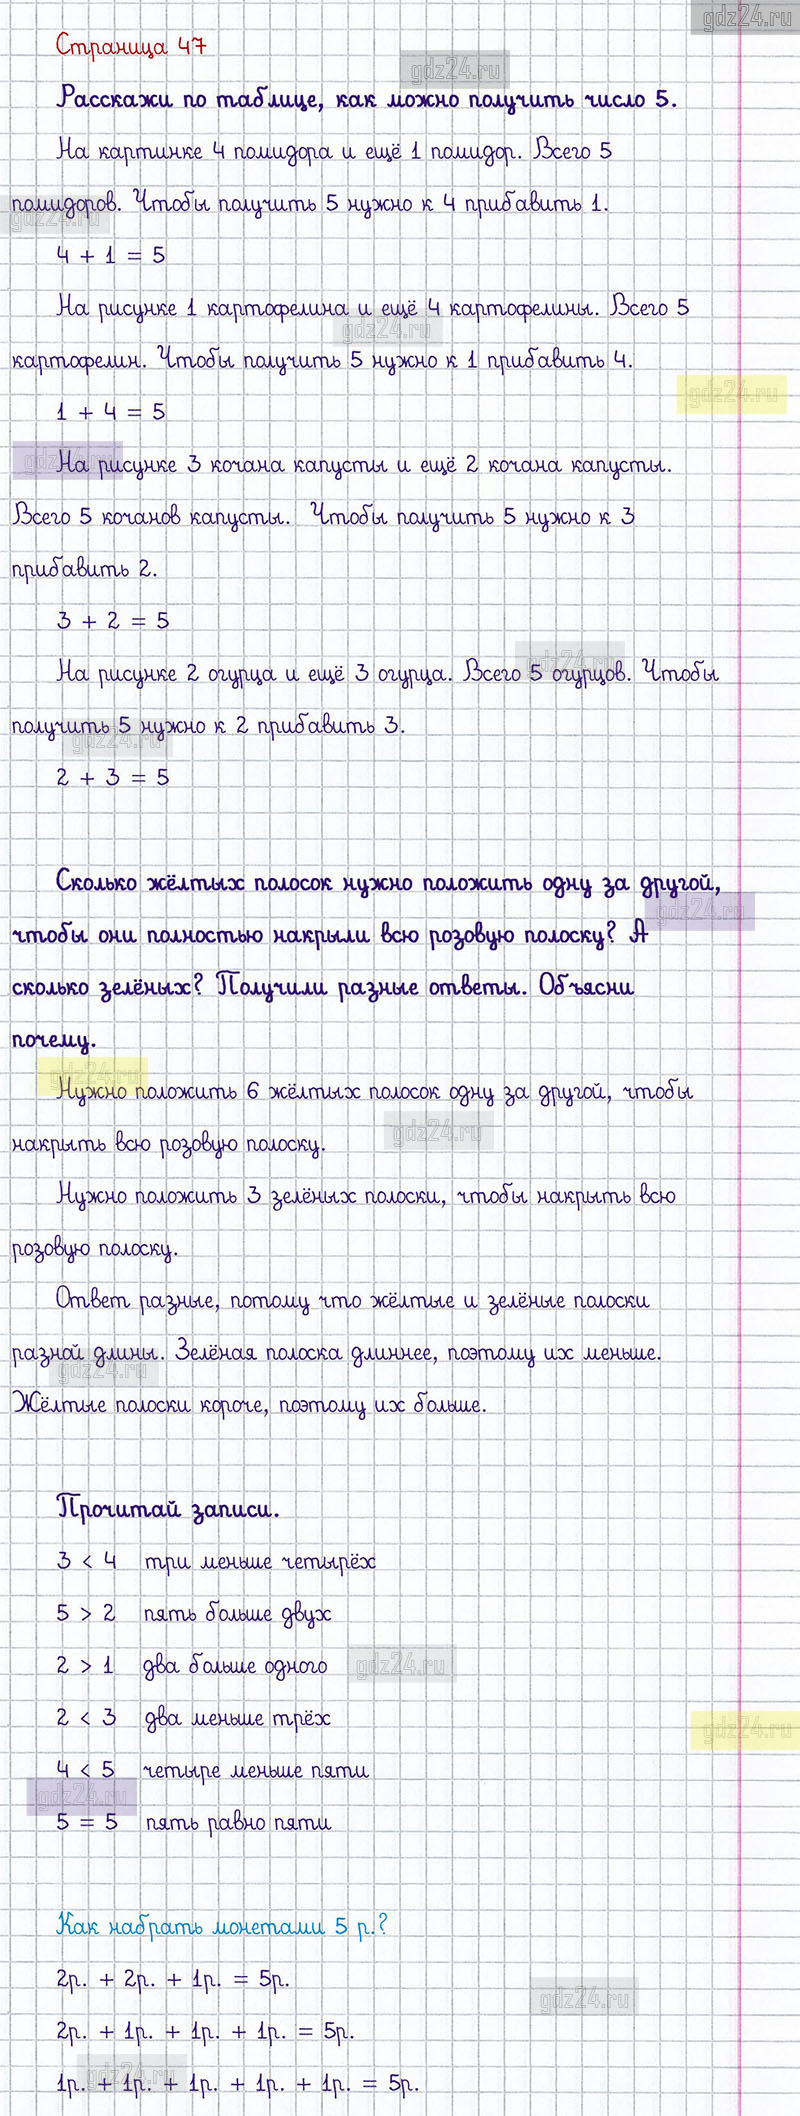 gdz24.ru
Страница 47
gdz24.ru
Расскажи по таблице, как можно получить число 5.
На картинке 4 помидора и ещё 1 помидор. Всего 5
помидоров. Чтобы получить 5 нужно к 4 прибавить 1.
gdz24.ru
4 + 1 = 5
На рисунке 1 картофелина и ещё 4 картофелины. Всего 5
gdz24.ru
картофелин. Чтобы получить 5 нужно к 1 прибавить 4.
gdz24.ru
1 + 4 = 5
gdz24.ru
На рисунке 3 кочана капусты и ещё 2 кочана капусты.
Всего 5 кочанов капусты. Чтобы получить 5 нужно к 3
прибавить 2.
3 + 2 = 5
gdz24.ru
На рисунке 2 огурца и ещё 3 огурца. Всего 5 огурцов. Чтобы
получить 5 нужно к 2 прибавить 3.
gdz24.ru
2 + 3 = 5
Сколько жёлтых полосок нужно положить одну за другой,
gdz24.ru
чтобы они полностью накрыли всю розовую полоску? А
сколько зелёных? Получили разные ответы. Объясни
почему.
gdz24.ru
Нужно положить 6 жёлтых полосок одну за другой, чтобы
gdz24.ru
накрыть всю розовую полоску.
Нужно положить 3 зелёных полоски, чтобы накрыть всю
розовую полоску.
Ответ разные, потому что жёлтые и зелёные полоски
разной длины. Зелёная полоска длиннее, поэтому их меньше.
gdz24.ru
Жёлтые полоски короче, поэтому их больше.
Прочитай записи.
3 < 4 три меньше четырёх
5 > 2 пять больше двух
2 > 1 два больше одного
gdz24.ru
2 < 3 два меньше трёх
gdz24.ru
4 < 5 четыре меньше пяти
gdz24.ru
5 = 5 пять равно пяти
Как набрать монетами 5 р.?
2р. + 2р. + 1р. = 5р.
gdz24.ru
2р. + 1р. + 1р. + 1р. = 5р.
gdz24.ru
1р. + 1р. + 1р. + 1р. + 1р. = 5р.